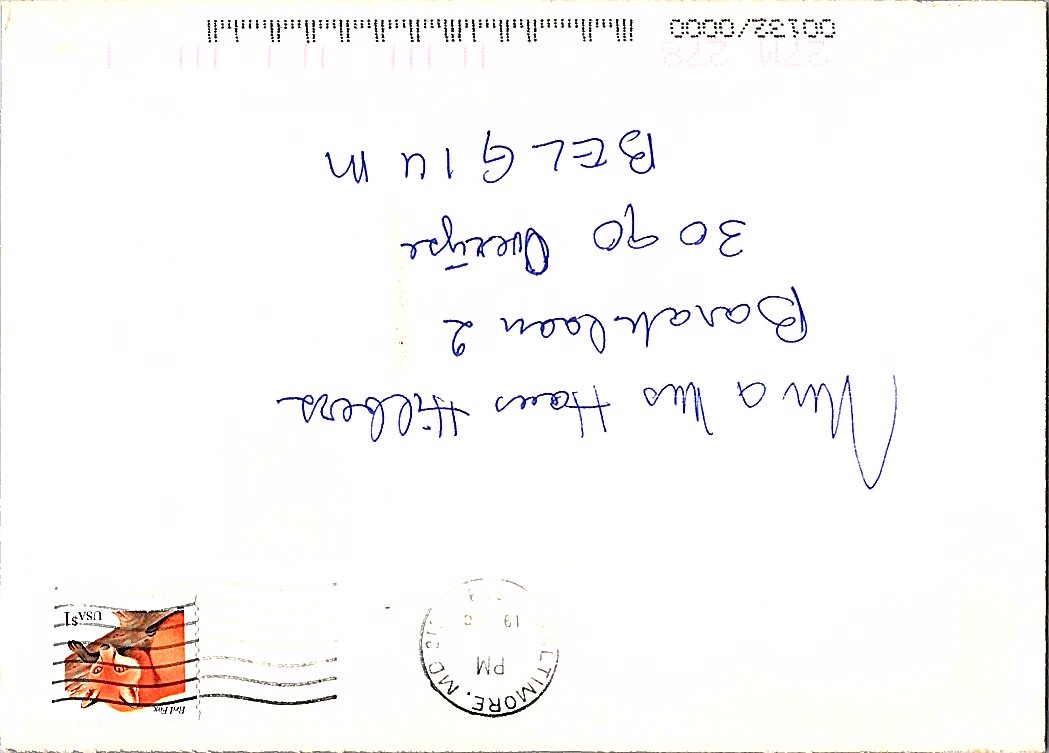 BALTIMORE, MD 21
PM
19
Red Fox
USA $1
Mr a Mrs Hans Hilbers
Baraklaan 2
3090 Overijse
BELGIUM
27M 278
00132/0000